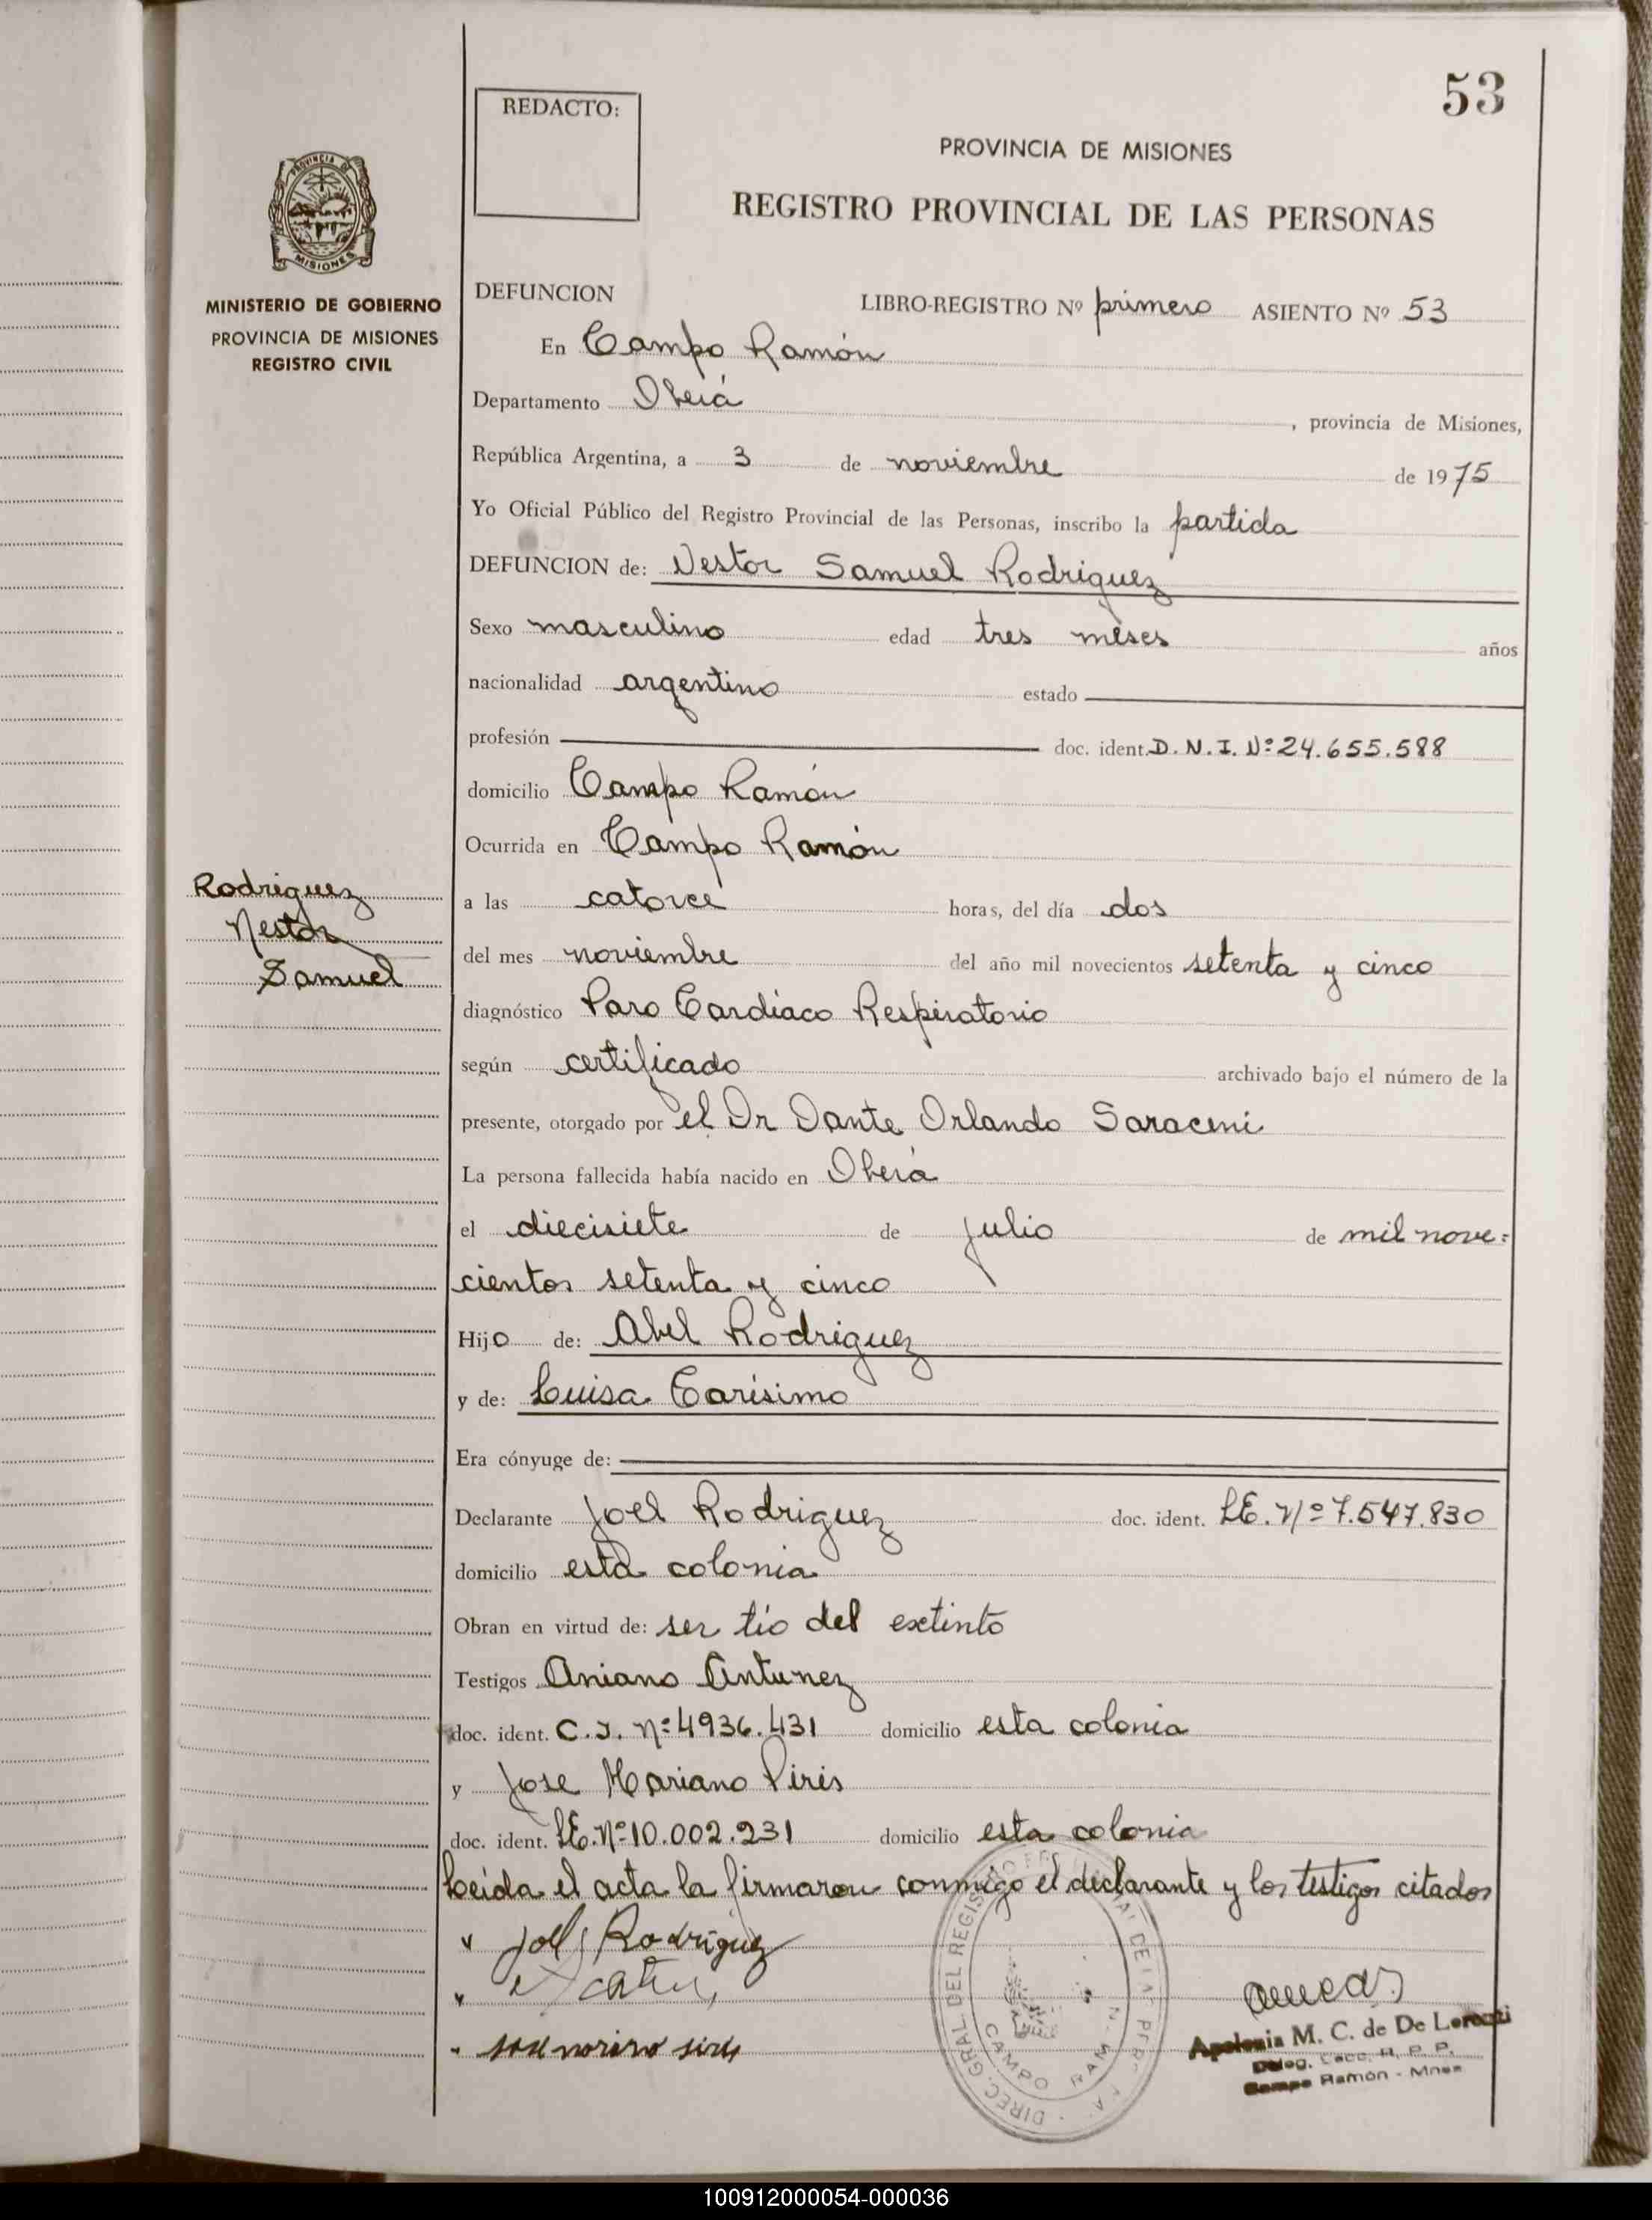 53
REDACTO:
PROVINCIA DE MISIONES
REGISTRO PROVINCIAL DE LAS PERSONAS
PROVINCIA DE
MISIONES
MINISTERIO DE GOBIERNO
PROVINCIA DE MISIONES
REGISTRO CIVIL
DEFUNCION LIBRO-REGISTRO Nº primero ASIENTO Nº 53
En Campo Ramón
Departamento Oberá , provincia de Misiones,
República Argentina, a 3 de noviembre de 1975
Yo Oficial Público del Registro Provincial de las Personas, inscribo la partida
DEFUNCION de: Nestor Samuel Rodriguez
Sexo masculino edad tres meses años
nacionalidad argentino estado
profesión doc. ident. D. N. I. Nº 24.655.588
domicilio Campo Ramón
Ocurrida en Campo Ramón
Rodriguez
Nestor
Samuel
a las catorce horas, del día dos
del mes noviembre del año mil novecientos setenta y cinco
diagnóstico Paro Cardíaco Respiratorio
según certificado archivado bajo el número de la
presente, otorgado por el Dr Dante Orlando Saraceni
La persona fallecida había nacido en Oberá
el diecisiete de julio de mil nove=
cientos setenta y cinco
Hijo de: Abel Rodriguez
y de: Luisa Carísimo
Era cónyuge de:
Declarante Joel Rodriguez doc. ident. LE. Nº 7.547.830
domicilio esta colonia
Obran en virtud de: ser tío del extinto
Testigos Aniano Antunez
doc. ident. C.I. Nº 4936.431 domicilio esta colonia
y Jose Mariano Piris
doc. ident. LE. Nº 10.002.231 domicilio esta colonia
Leída el acta la firmaron conmigo el declarante y los testigos citados
Joel Rodriguez
DIREC. GRAL DEL REGISTRO
CAMPO RAMON
Apolonia M. C. de De
Campo Ramón - Mnes.
100912000054-000036